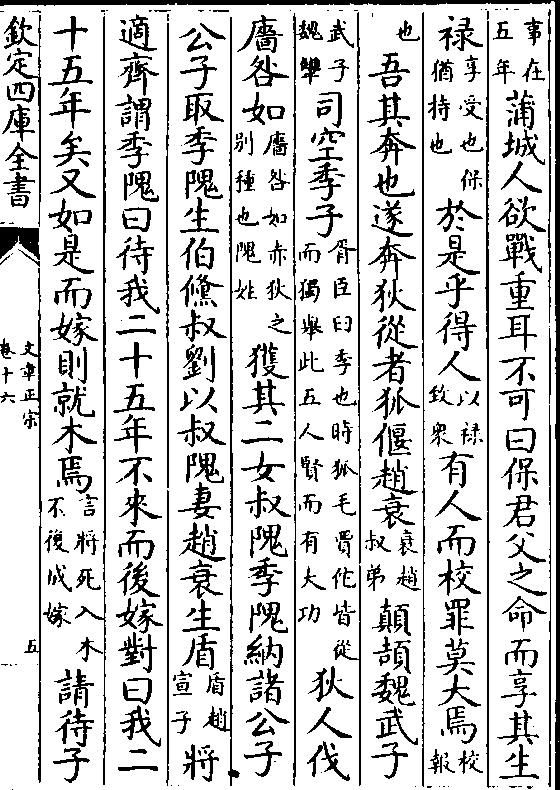 事在五年蒲城人欲戰重耳不可曰保君父之命而享其生
禄享受也保猶持也於是乎得人以禄致衆有人而校罪莫大焉校報
也吾其奔也遂奔狄從者狐偃趙衰衰趙叔弟顛頡魏武子
武子魏犨司空季子胥臣臼季也時狐毛賈佗皆從而獨舉此五人賢而有大功狄人伐
廧咎如廧咎如赤狄之别種也隗姓獲其二女叔隗季隗納諸公子
公子取季隗生伯鯈叔劉以叔隗妻趙衰生盾盾趙宣子將
適齊謂季隗曰待我二十五年不來而後嫁對曰我二
十五年矣又如是而嫁則就木焉言將死入木不復成嫁請待子
欽定四庫全書
文章正宗
卷十六
五